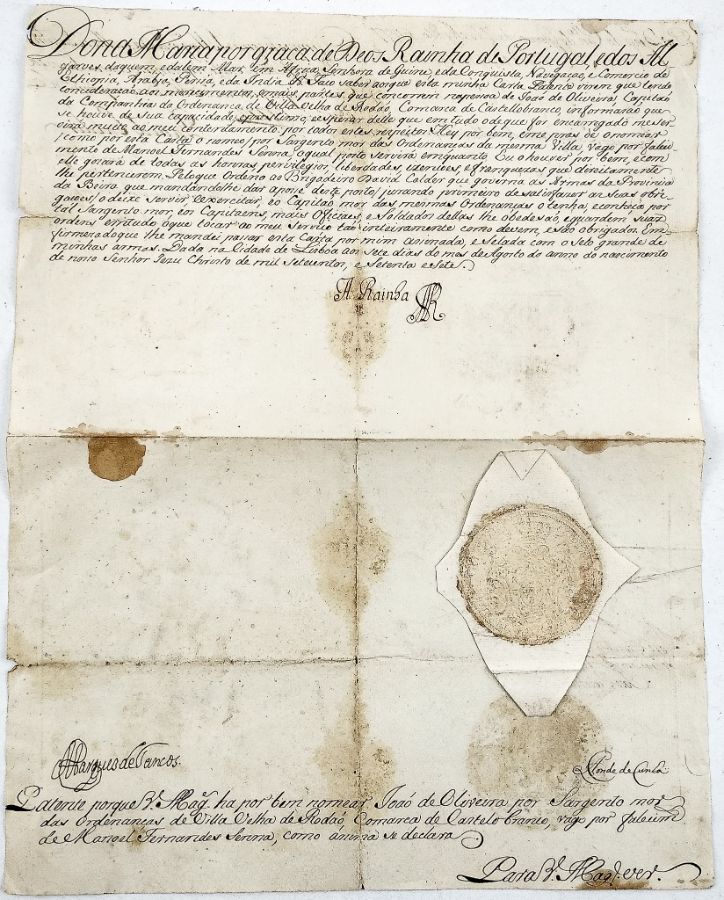 Dona Maria por graça de Deos Rainha de Portugal, e dos Al
garves, daquem, e dalem Mar, em Africa, Senhora de Guine, e da Conquista, Navegaçaõ, e Comercio de
Ethiopia, Arabia, Persia, e da India &c. Faço saber aos que esta minha Carta Patente virem que tendo
consideraçaõ aos merecimentos, e mais partes que concorrem na pessoa de Joaõ de Oliveira, Capitaõ
da Companhia da Ordenança de Villa Velha de Rodaõ, Comarca de Castello branco, informaraõ que
se houve de sua capacidade, e prestimo, e esperar delle que em tudo o de que for encarregado me ser
virá muito ao meu contentamento, por todos estes respeitos: Hey por bem, e me praz de o nomear
(como por esta Carta o nomeo) por Sargento mór das Ordenanças da mesma Villa, vago por faleci
mento de Manoel Fernandes Serena, o qual posto servirá em quanto Eu o houver por bem, e com
elle gozará de todas as honras, previlegios, liberdades, izençoes, e franquezas que direitamente
lhe pertencerem. Pelo que Ordeno ao Brigadeiro David Calder que governa as Armas da Provincia
da Beira, que mandandolhe dar a posse deste posto, jurando primeiro de satisfazer as suas obri
gaçoes, o deixe servir, e exercitar, e o Capitaõ mór das mesmas Ordenanças o tenha, e conheça por
tal Sargento mór, e os Capitaens, mais Officiaes, e Soldados dellas lhe obedeçaõ, e guardem suas
ordens em tudo o que tocar ao meu Serviço taõ inteiramente como devem, e saõ obrigados. Em
firmeza do que lhe mandei passar esta Carta por mim assinada, e selada com o Selo grande de
minhas armas. Dada na Cidade de Lisboa aos sete dias do mes de Agosto do anno do nascimento
de nosso Senhor Jezu Christo de mil setecentos, e setenta e sete.
A Rainha
Marques de Tancos.
Conde da Cunha
Patente porque V. Mag. ha por bem nomear Joaõ de Oliveira por Sargento mór
das Ordenanças de Villa Velha de Rodaõ, Comarca de Castelo branco, vago por falecim.
de Manoel Fernandes Serena, como ásima se declara
Para V. Mag. ver.